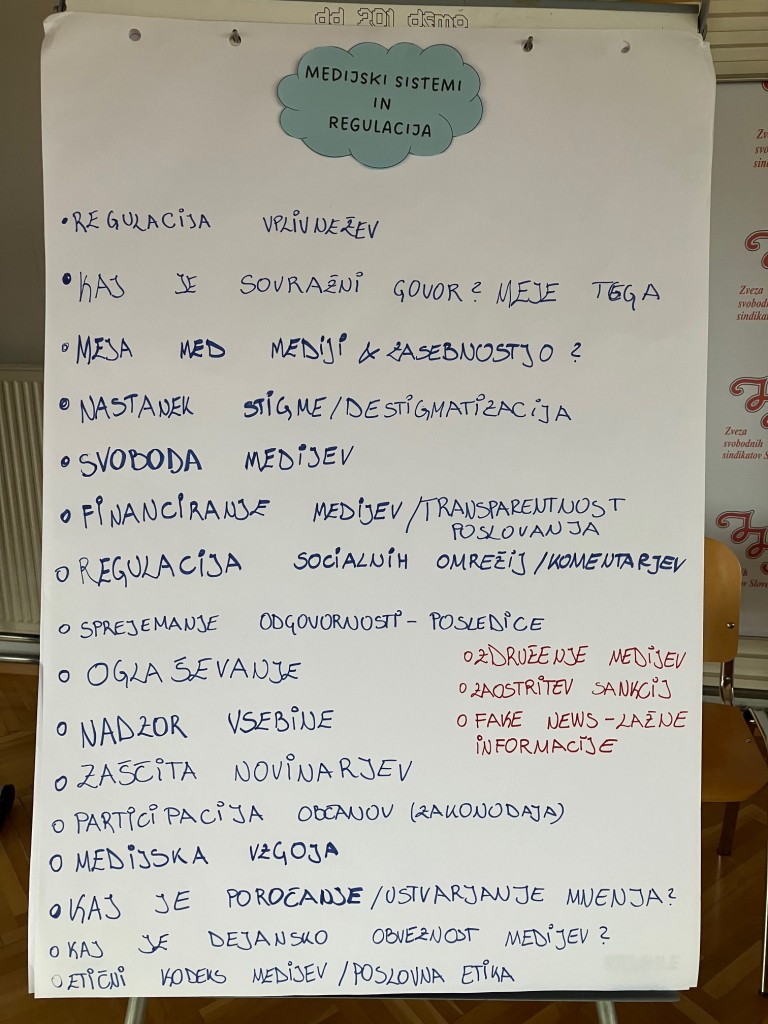 dd 201 demo
MEDIJSKI SISTEMI
IN
REGULACIJA
• REGULACIJA VPLIVNEŽEV
• KAJ JE SOVRAŽNI GOVOR? MEJE TEGA
• MEJA MED MEDIJI & ZASEBNOSTJO?
• NASTANEK STIGME/DESTIGMATIZACIJA
• SVOBODA MEDIJEV
• FINANCIRANJE MEDIJEV/TRANSPARENTNOST
POSLOVANJA
• REGULACIJA SOCIALNIH OMREŽIJ/KOMENTARJEV
• SPREJEMANJE ODGOVORNOSTI - POSLEDICE
• OGLAŠEVANJE
• NADZOR VSEBINE
• ZAŠČITA NOVINARJEV
• PARTICIPACIJA OBČANOV (ZAKONODAJA)
• MEDIJSKA VZGOJA
• KAJ JE POROČANJE/USTVARJANJE MNENJA?
• KAJ JE DEJANSKO OBVEZNOST MEDIJEV?
• ETIČNI KODEKS MEDIJEV/POSLOVNA ETIKA
• ZDRUŽENJE MEDIJEV
• ZAOSTRITEV SANKCIJ
• FAKE NEWS - LAŽNE
INFORMACIJE
Zveza
svobodn
sindika
Zveza
svobodnih
sindikatov S
v Slove